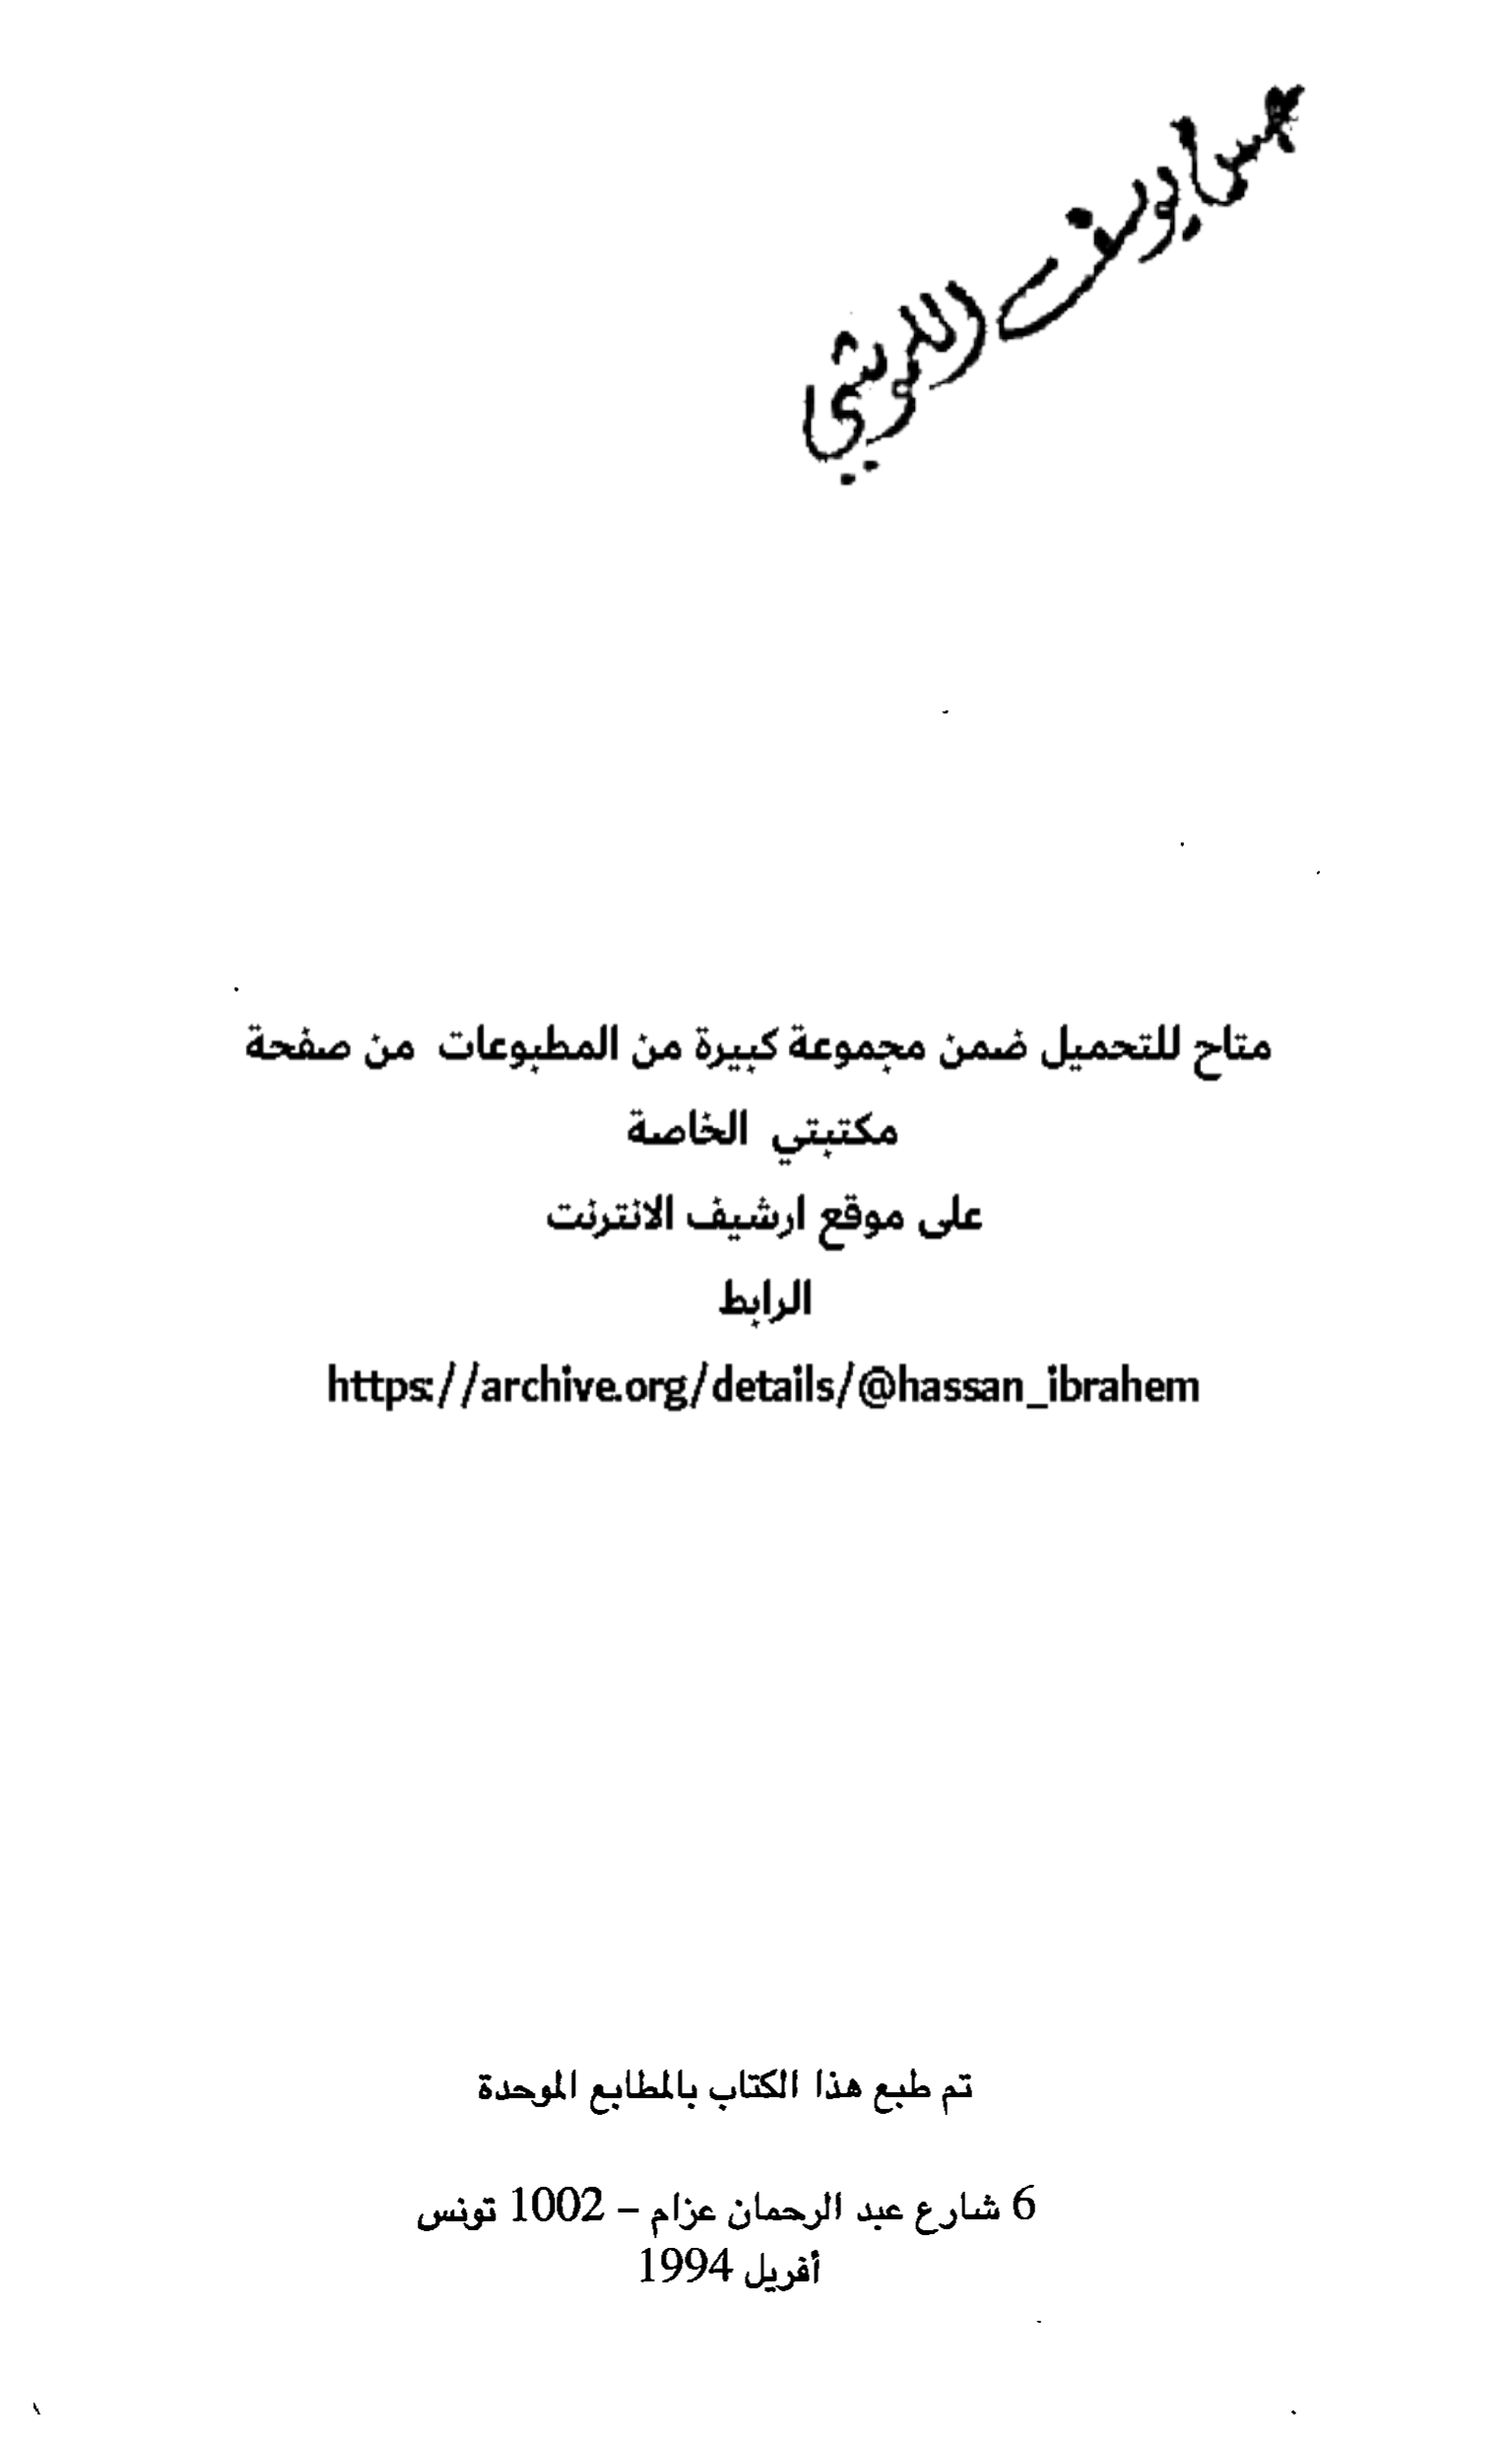 متاح للتحميل ضمن مجموعة كبيرة من المطبوعات من صفحة
مكتبتي الخاصة
على موقع ارشيف الانترنت
الرابط
https://archive.org/details/@hassan_ibrahem
تم طبع هذا الكتاب بالمطابع الموحدة
6 شارع عبد الرحمان عزام – 1002 تونس
أفريل 1994